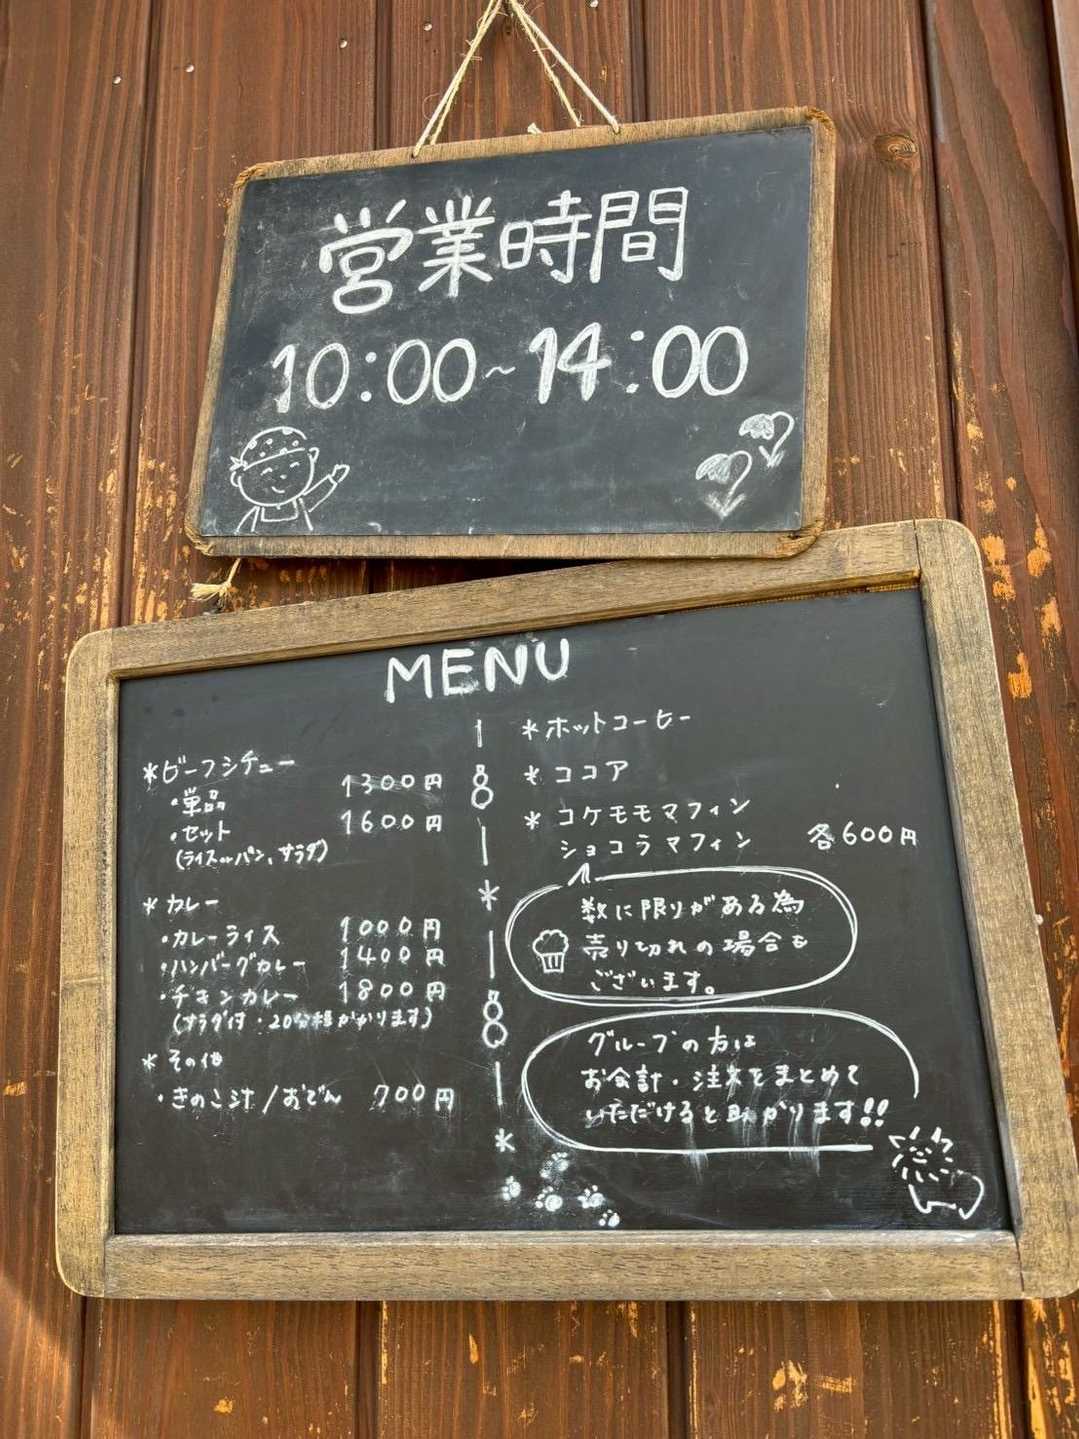 営業時間
10:00~14:00
MENU
*ビーフシチュー
・単品 1300円
・セット 1600円
(ライスorパン、サラダ)
*カレー
・カレーライス 1000円
・ハンバーグカレー 1400円
・チキンカレー 1800円
(サラダ付・20分程かかります)
*その他
・きのこ汁/おでん 700円
*ホットコーヒー
*ココア
*コケモモマフィン
ショコラマフィン 各600円
数に限りがある為
売り切れの場合も
ございます。
グループの方は
お会計・注文をまとめて
いただけると助かります!!